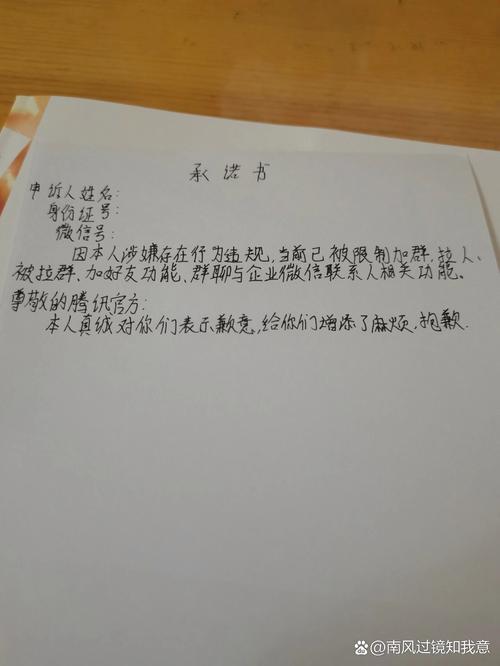 承诺书
申诉人姓名：
身份证号：
微信号：
因本人涉嫌存在行为违规，当前已被限制加群，拉人、
被拉群、加好友功能、群聊与企业微信联系人相关功能。
尊敬的腾讯官方：
本人真诚对你们表示歉意，给你们增添了麻烦，抱歉.
@南风过镜知我意